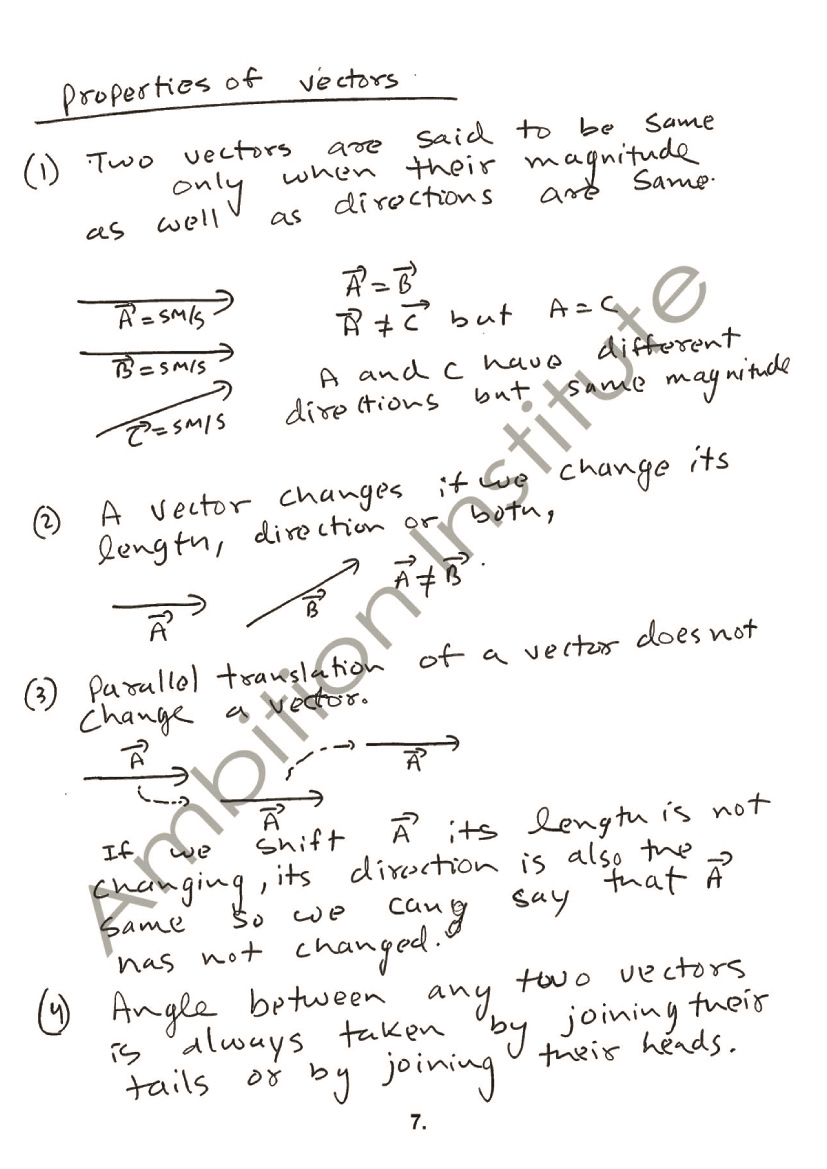 Properties of vectors
(1) Two vectors are said to be same
only when their magnitude
as well as directions are same.
A⃗ = 5M/S
B⃗ = 5M/S
C⃗ = 5M/S
A⃗ = B⃗
A⃗ ≠ C⃗ but A = C
A and C have different
directions but same magnitude
(2) A vector changes if we change its
length, direction or both,
A⃗
B⃗
A⃗ ≠ B⃗.
(3) Parallel translation of a vector does not
change a vector.
A⃗
A⃗
A⃗
If we shift A⃗ its length is not
changing, its direction is also the
same so we can say that A⃗
has not changed.
(4) Angle between any two vectors
is always taken by joining their
tails or by joining their heads.
Ambition Institute
7.